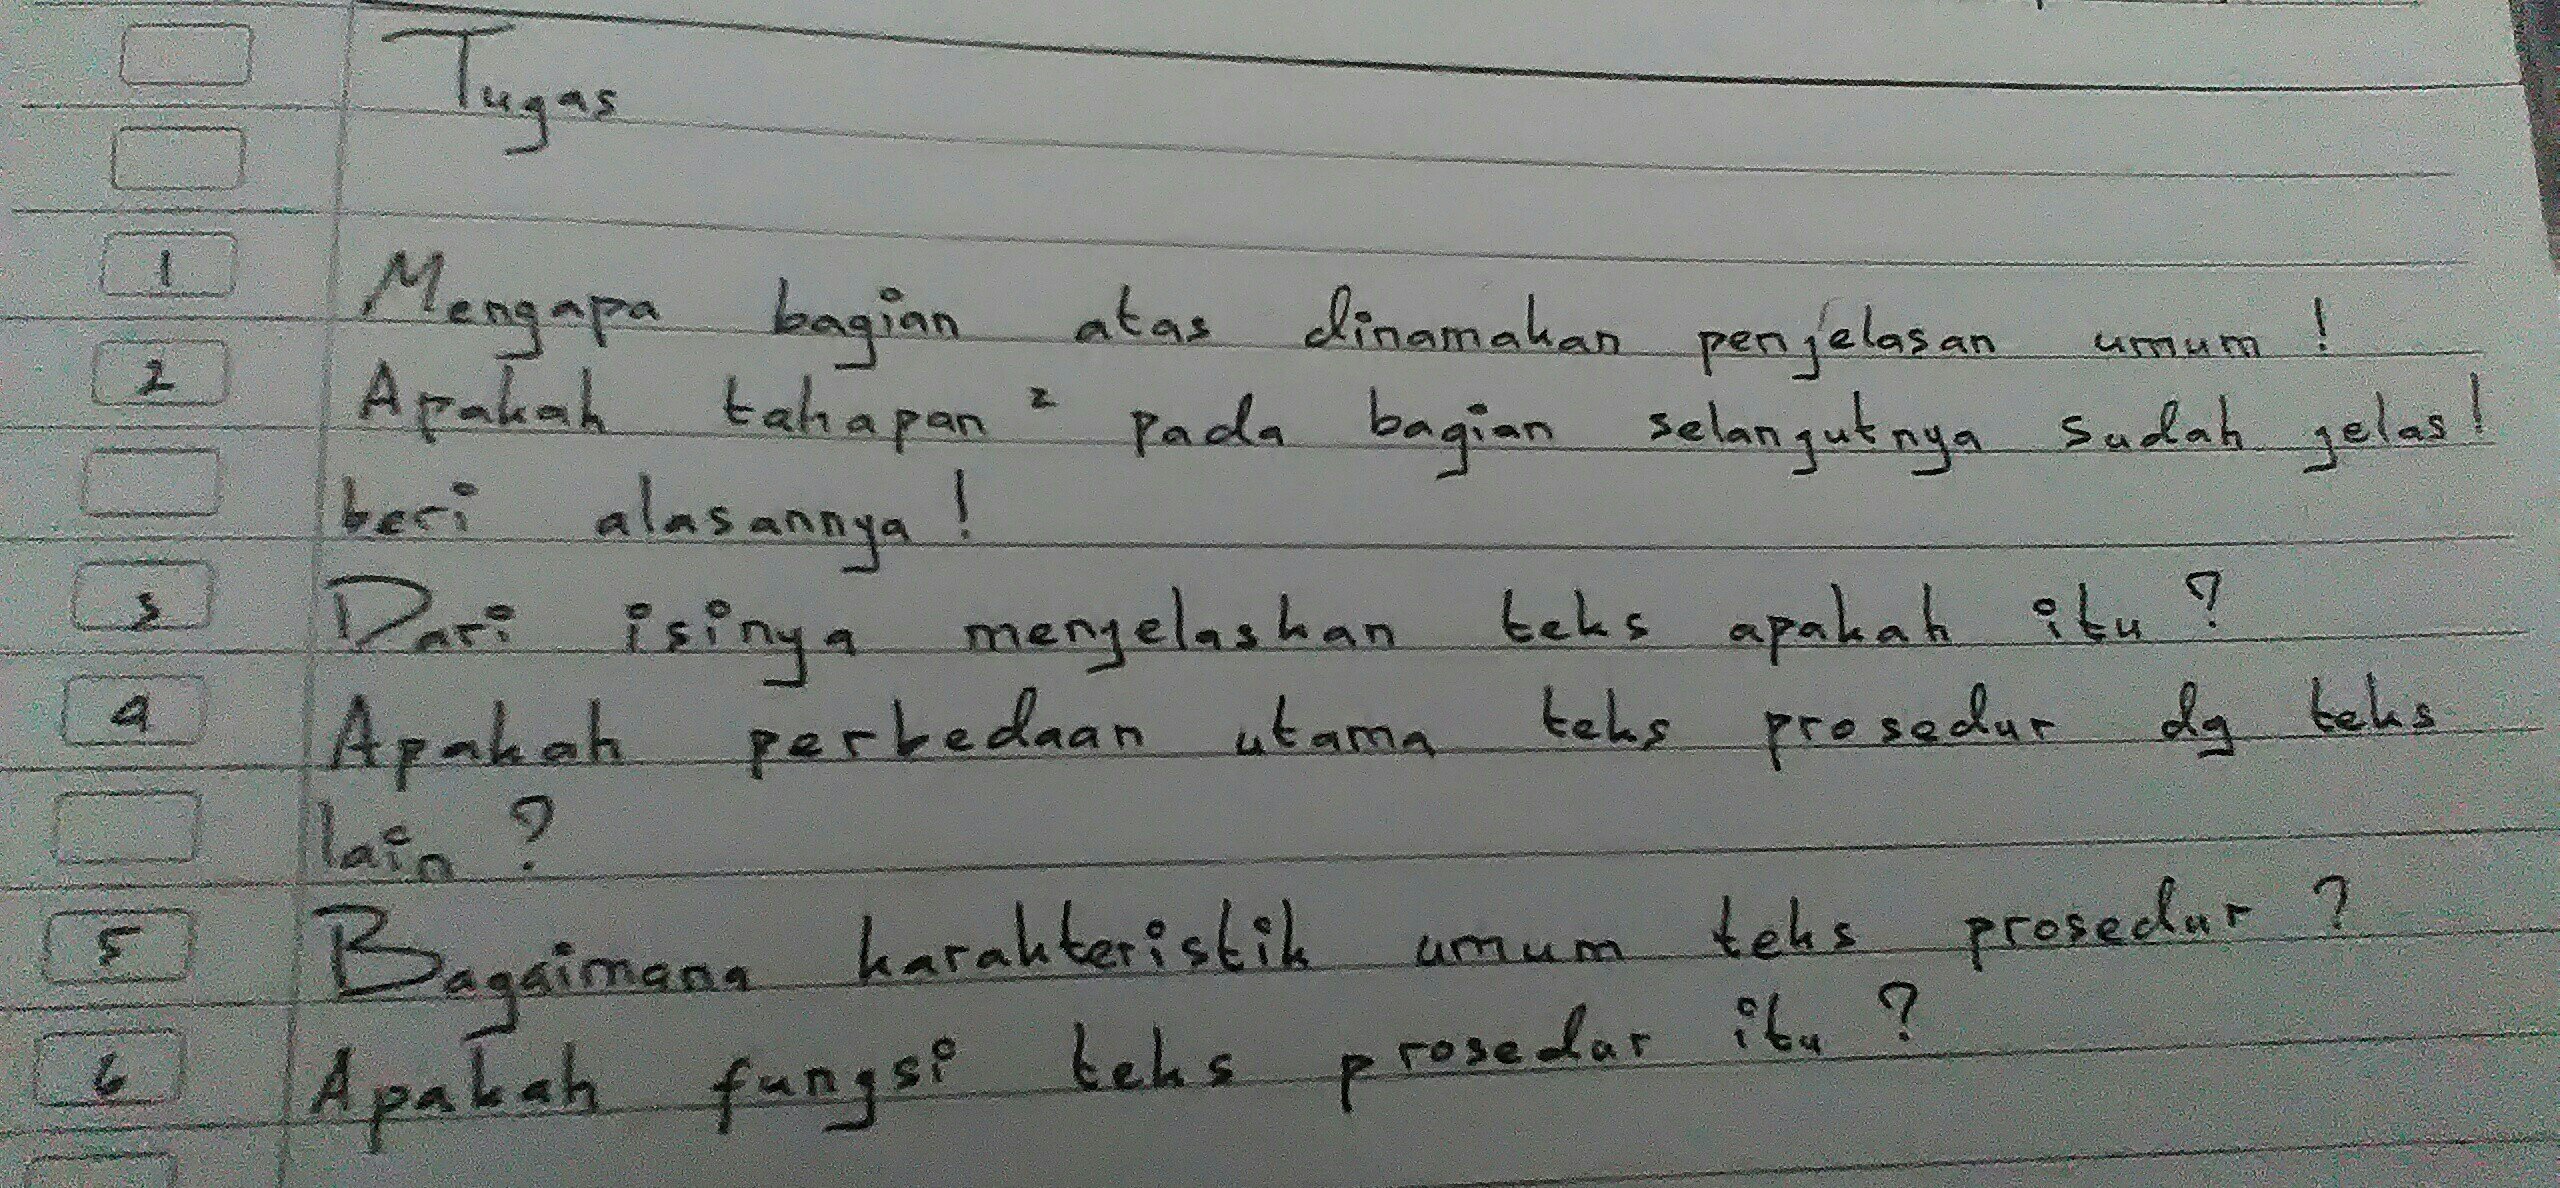 Tugas
1 Mengapa bagian atas dinamakan penjelasan umum!
2 Apakah tahapan² pada bagian selanjutnya sudah jelas!
beri alasannya!
3 Dari isinya menjelaskan teks apakah itu?
4 Apakah perbedaan utama teks prosedur dg teks
lain?
5 Bagaimana karakteristik umum teks prosedur?
6 Apakah fungsi teks prosedur itu?